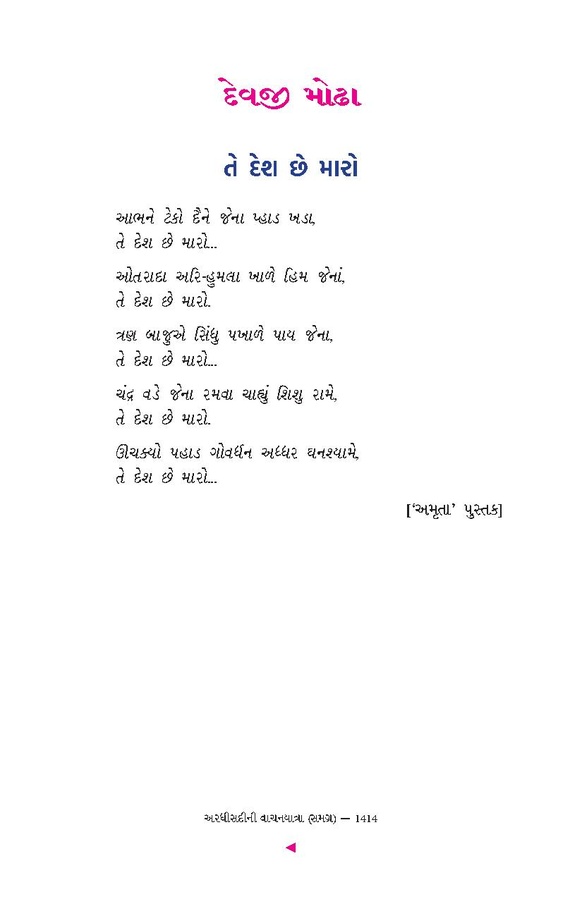 દેવજી મોઢા
તે દેશ છે મારો
આભને ટેકો દૈને જેના પ્હાડ ખડા,
તે દેશ છે મારો...
ઓતરાદા અરિ-હુમલા ખાળે હિમ જેનાં,
તે દેશ છે મારો.
ત્રણ બાજુએ સિંધુ પખાળે પાય જેના,
તે દેશ છે મારો...
ચંદ્ર વડે જેના રમવા ચાહ્યું શિશુ રામે,
તે દેશ છે મારો.
ઊંચક્યો પહાડ ગોવર્ધન અધ્ધર ઘનશ્યામે,
તે દેશ છે મારો...
[‘અમૃતા’ પુસ્તક]
અરધીસદીની વાચનયાત્રા (સમગ્ર) — 1414